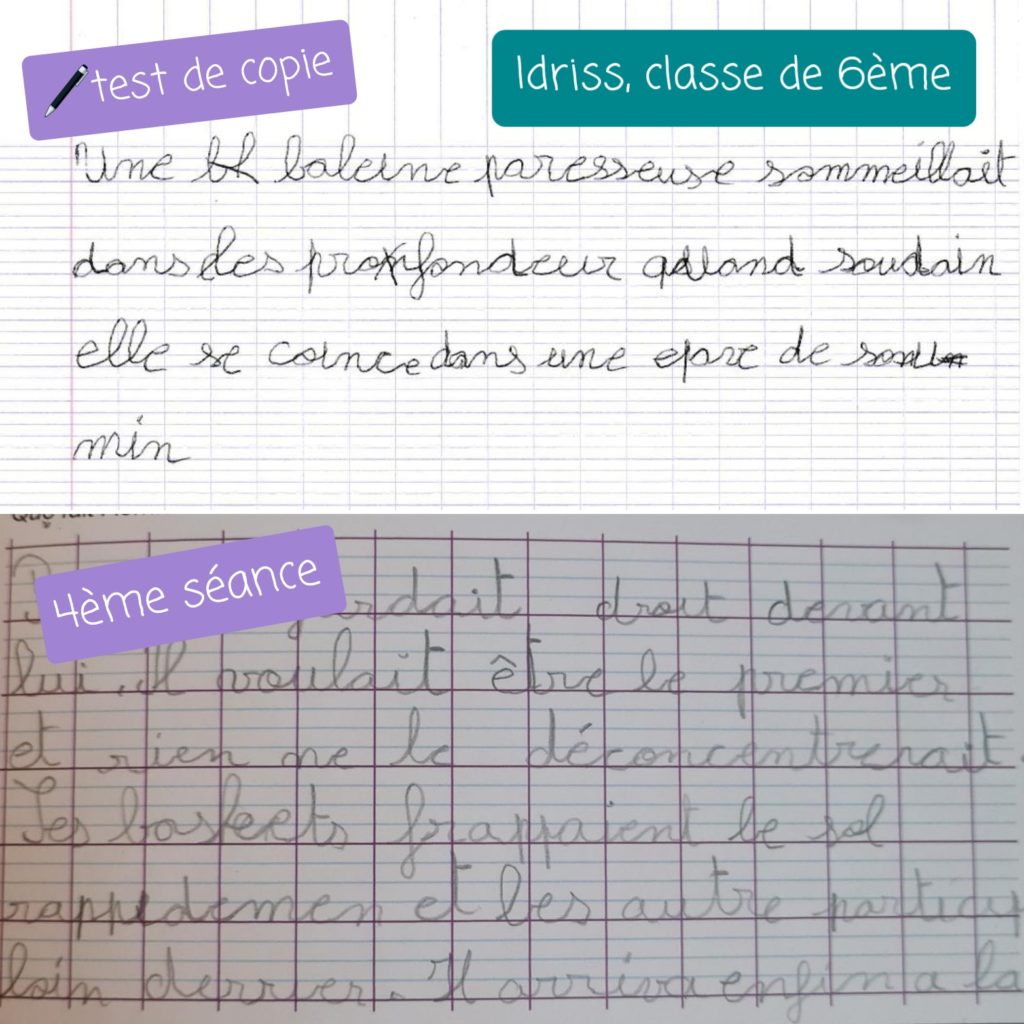 test de copie
Idriss, classe de 6ème
Une bh baleine paresseuse sommeillait
dans des profondeur quand soudain
elle se coince dans une epve de
min
4ème séance
droit devant
lui. Il voulait être le premier
et rien ne le déconcentrerait.
Ses baskeets frappaient le sol
rappidemen et les autre particip
loin derrer. Il arriva enfin a la